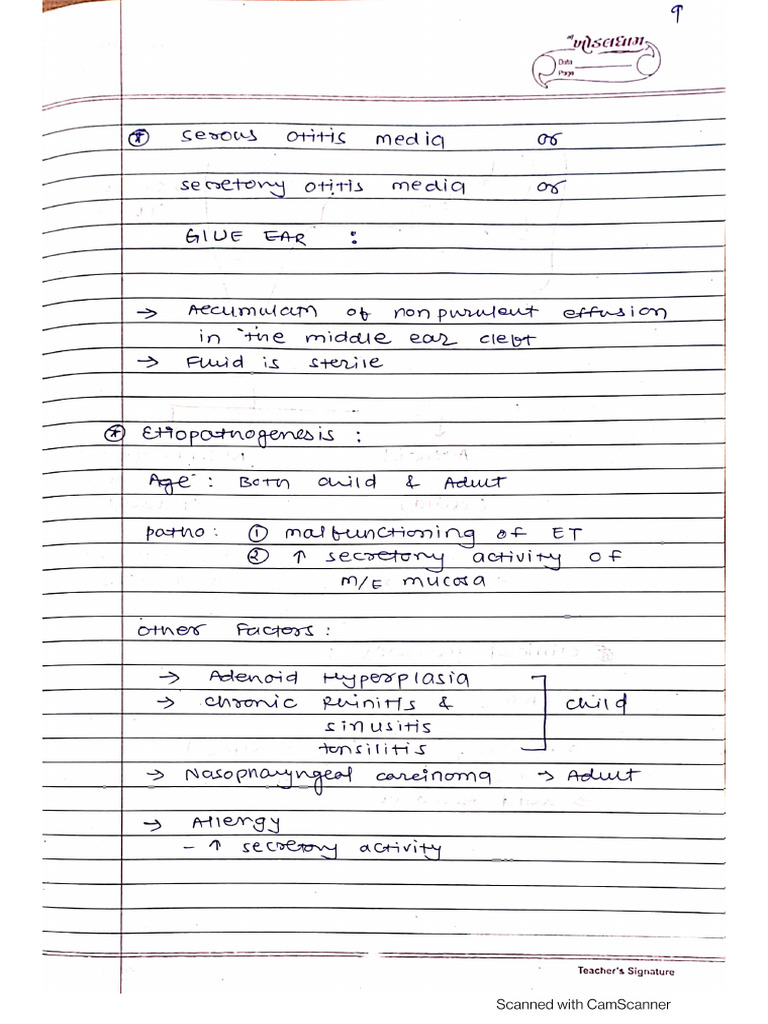 9
શ્રી ખોડલધામ
Data
Page
* serous otitis media or
secretory otitis media or
GLUE EAR :
→ Accumulatn of nonpurulent effusion
in the middle ear cleft
→ Fluid is sterile
* Etiopathogenesis :
Age : Both child & Adult
patho : ① malfunctioning of ET
② ↑ secretory activity of
M/E mucosa
other Factors :
→ Adenoid Hyperplasia
→ chronic Rhinitis & child
sinusitis
tonsilitis
→ Nasopharyngeal carcinoma → Adult
→ Allergy
- ↑ secretory activity
Teacher's Signature
Scanned with CamScanner